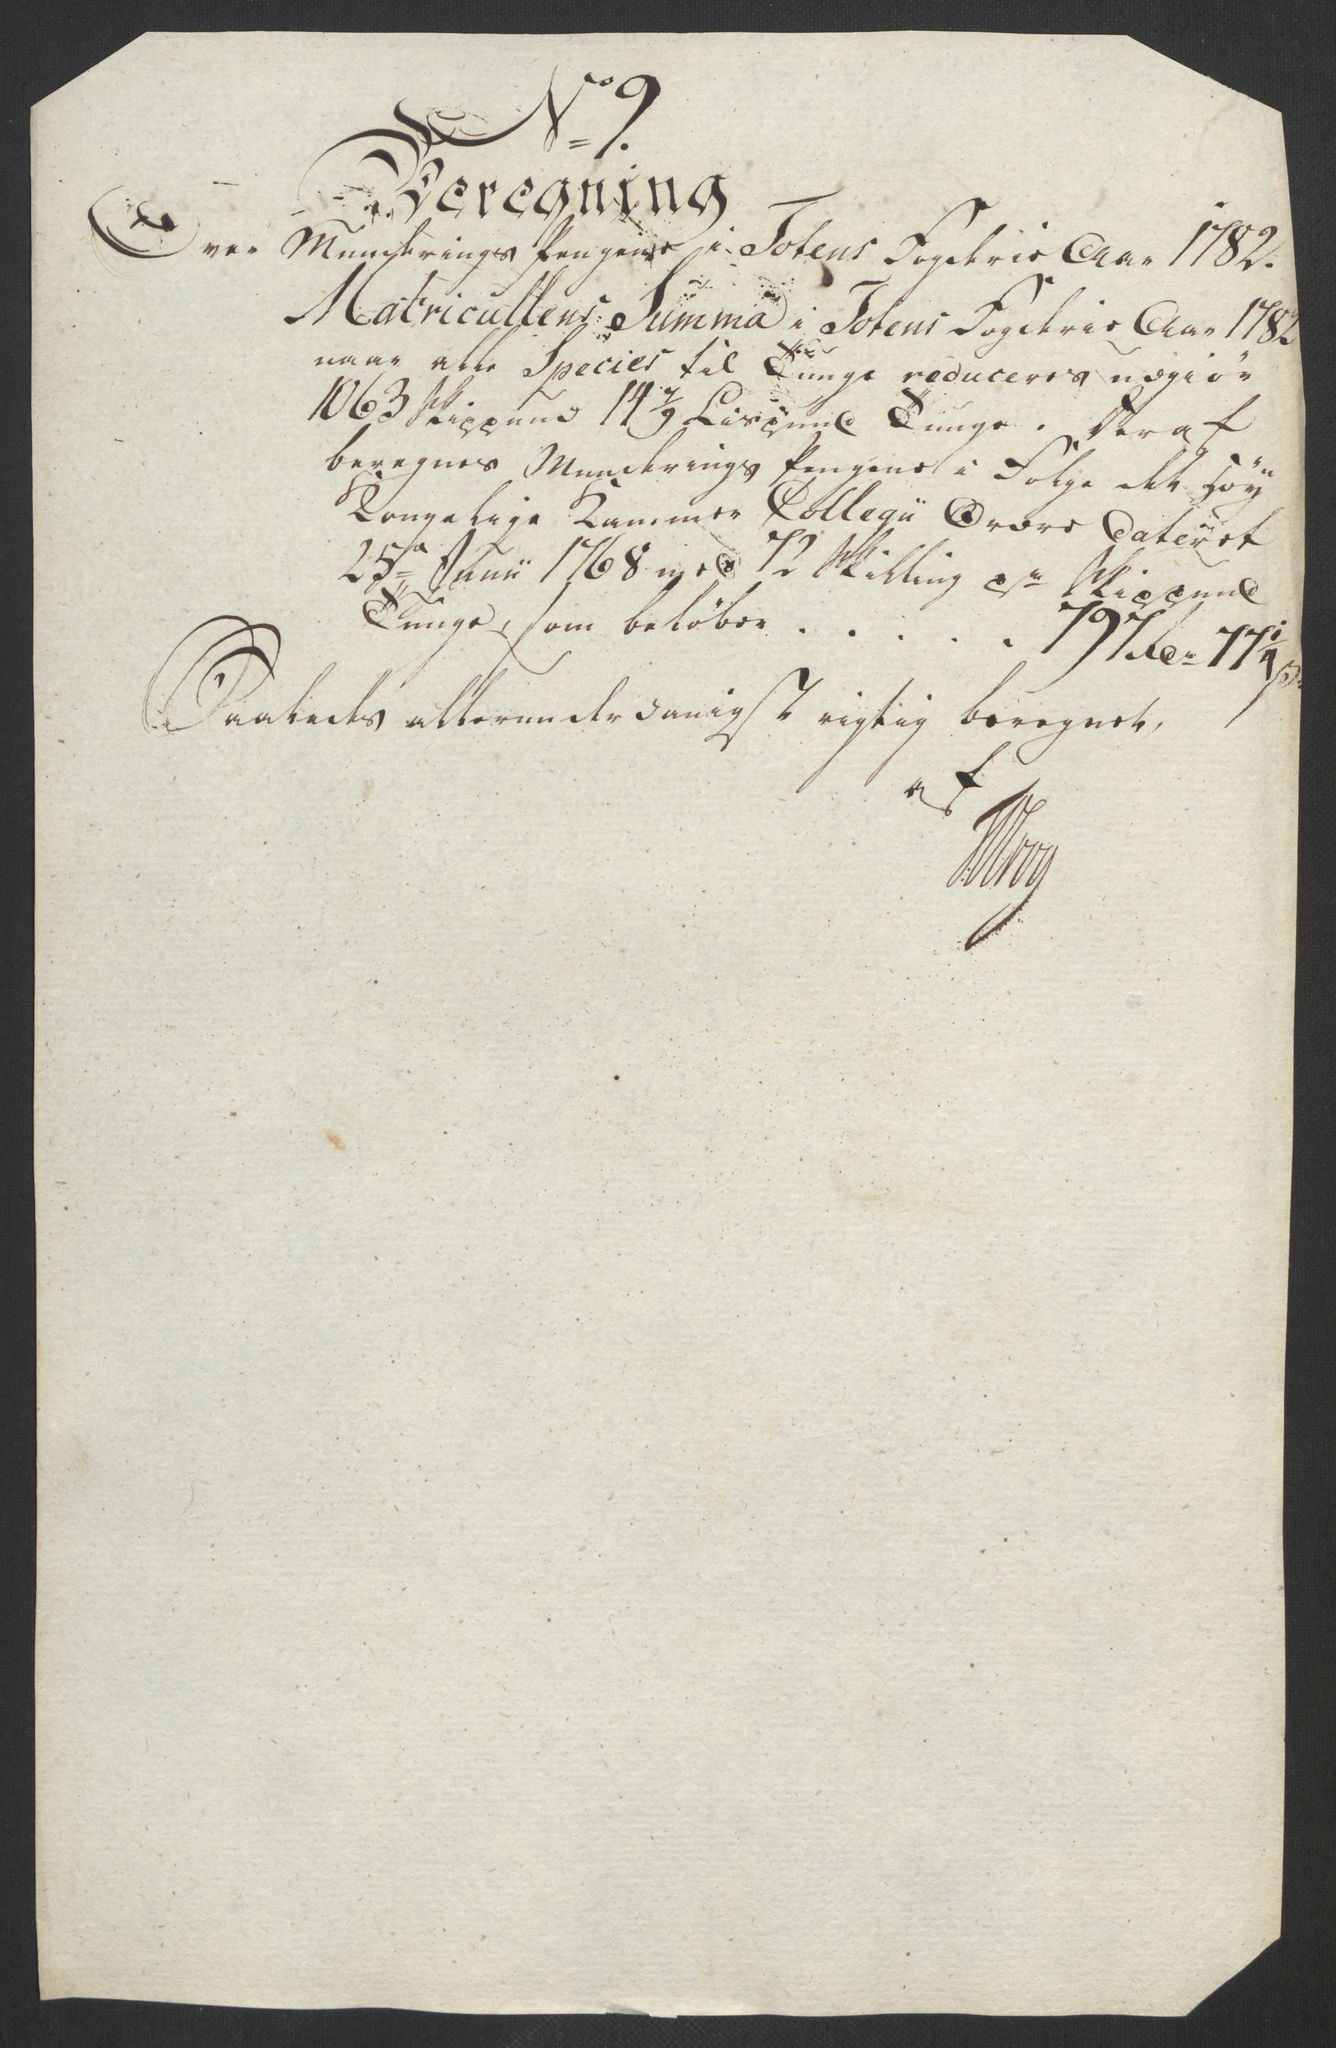 No 9.
Beregning
Over Munderings Pengene i Totens Fogderie Aar 1782.
Matricullens Summa i Totens Fogderie Aar 1782
naar alle Species til Tunge reduceres udgiør
1063 Skippund 14 7/9 Lispund Tunge. Deraf
beregnes Munderings Pengene i Følge det høy
Kongelige Kammer Collegii Ordre dateret
25de Junii 1768 med 72 Skilling pr Skippund
Tunge, som beløber . . . . . 797 Rdr 77 1/5 s
Saaledes allerunderdanigst rigtig beregnet,
af